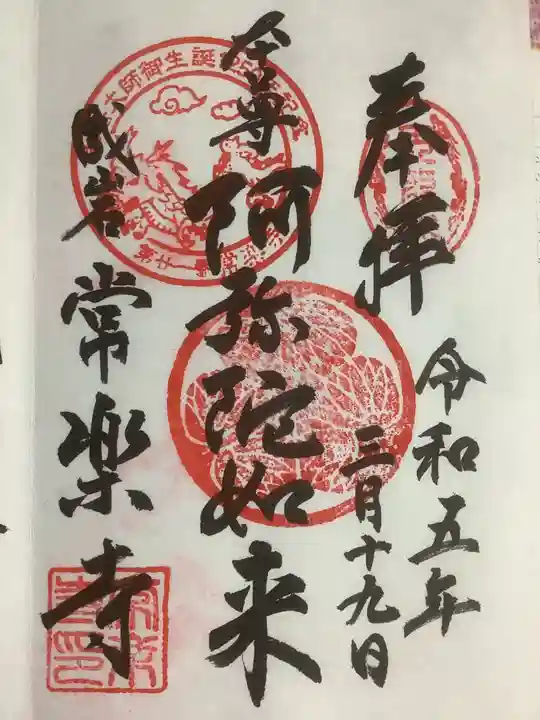 奉拝
令和五年
三月十九日
本尊 阿弥陀如来
成岩 常楽寺
大師御生誕